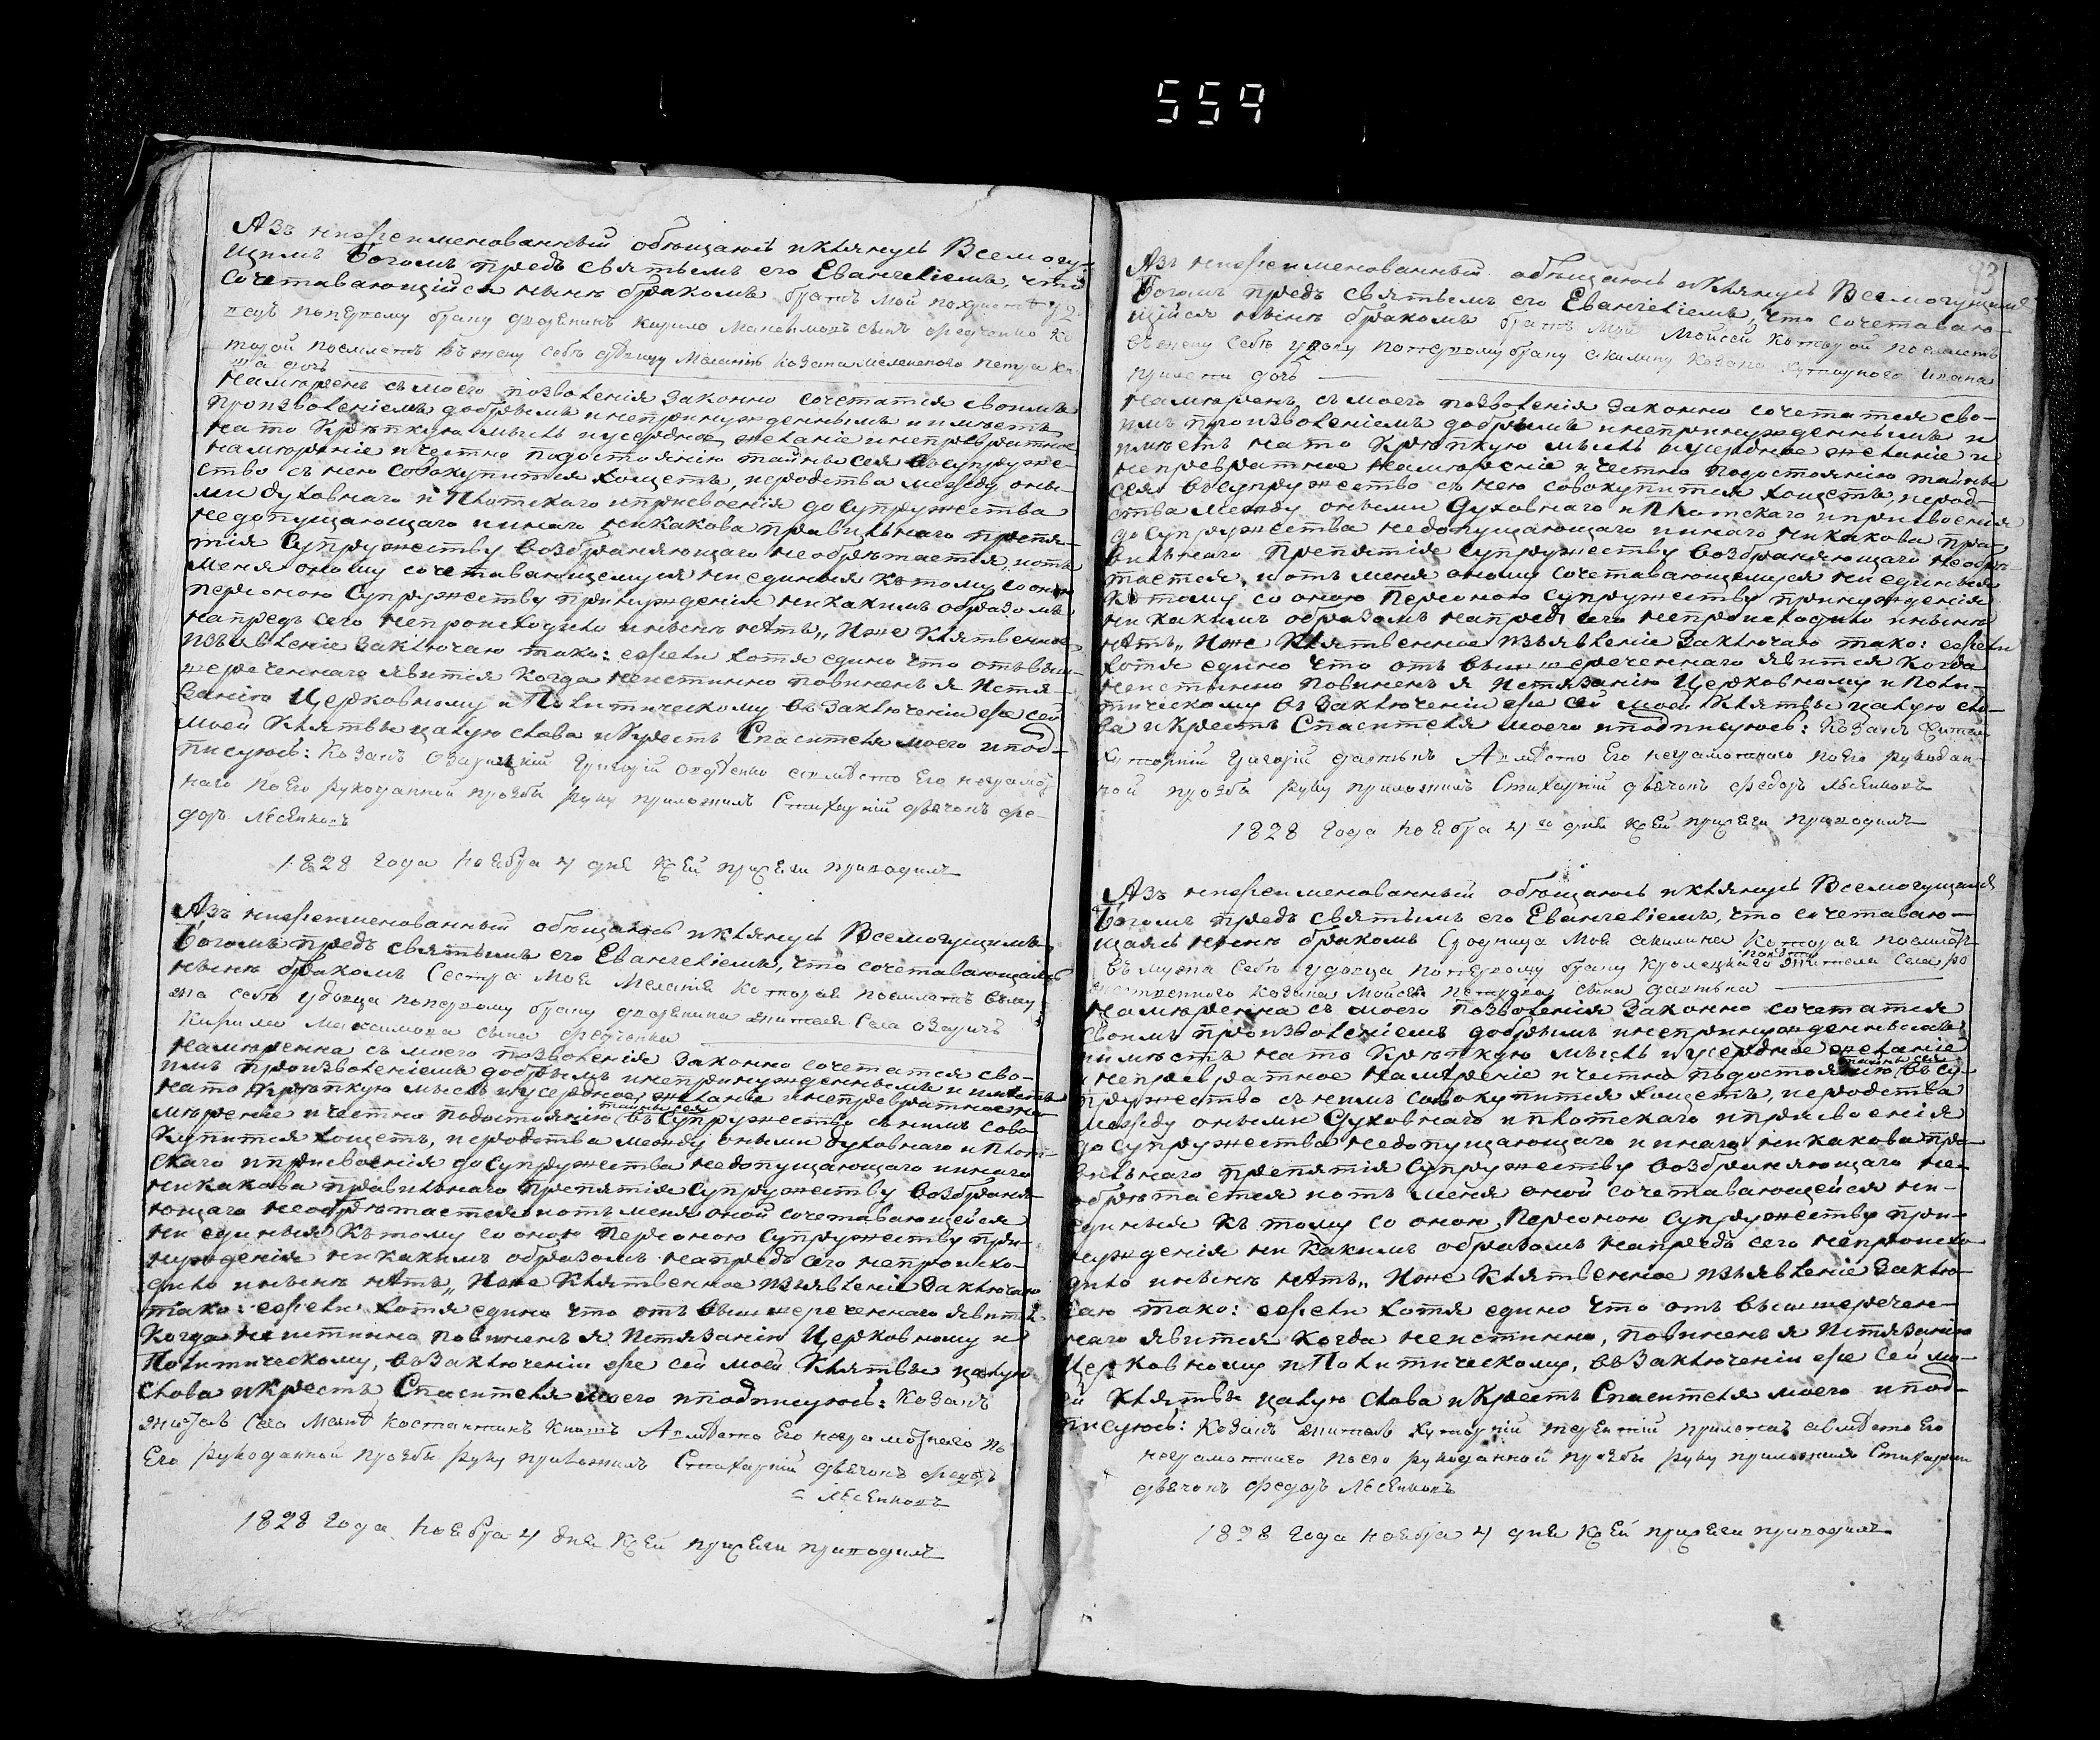 559
Азъ нижеименованный обѣщаюсь и клянусь Всемогу-
щимъ Богомъ предъ святымъ его Евангелiемъ, что
сочетавающiйся нынѣ бракомъ братъ мой
по первому браку дворянинъ Кирило Максимовъ сынъ ко
торой поемлетъ въ жену себѣ девицу Меланiю козака Петра
дочь
намѣренъ съ моего позволенiя законно сочетатся своимъ
произволенiемъ добрымъ и непринужденнымъ и имѣетъ
на то крѣпкую мысль и усердное желанiе и непревратное
намѣренiе и честно подостоянiю тайны сея въ супруже-
ство съ нею совокупится хощетъ, и родства между оны-
ми духовнаго и плотскаго и присвоенiя до супружества
недопущающаго и инаго никакова правильнаго препя-
тiя супружеству возбраняющаго необрѣтается, и отъ
меня оному сочетавающемуся ни единыя к тому со оною
персоною супружеству принужденiя никакимъ образомъ
напредъ сего непроисходило и нынѣ нѣтъ, Иже клятвенное
изъявленiе заключаю тако: ежели хотя едино что отъ выш-
шереченнаго явится когда неистинно повиненъ я истя-
занiю Церковному и Политическому въ заключенiи же сей
моей клятвы цалую слова и крестъ Спасителя моего и под-
писуюсь: Козакъ Григорiй а вмѣсто его неграмот
наго по его рукоданной прозбѣ руку приложилъ Стихарнiй дьячокъ Фе-
доръ
1828 года ноября 4 дня к сей присяги приводилъ
Азъ нижеименованный обѣщаюсь и клянусь Всемогущимъ
Богомъ предъ святымъ его Евангелiемъ, что сочетавающаясь
нынѣ бракомъ сестра моя Меланiя которая поемлетъ въ му
жа себѣ удовца по первому браку дворянина жителя села
Кирила Максимова сына
намѣренна съ моего позволенiя законно сочетатся сво-
имъ произволенiемъ добрымъ и непринужденнымъ и имѣетъ
на то крѣпкую мысль и усердное желанiе и непревратное на-
мѣренiе и честно подостоянiю тайны сея въ супружество съ нимъ сово-
купится хощетъ, и родства между оными духовнаго и плот-
скаго и присвоенiя до супружества недопущающаго и инаго
никакова правильнаго препятiя супружеству возбраня-
ющаго необрѣтается и отъ меня оной сочетавающейся
ни единыя к тому со оною персоною супружеству при-
нужденiя никакимъ образомъ напредъ сего непроисхо-
дило и нынѣ нѣтъ, Иже клятвенное изъявленiе заключаю
тако: ежели хотя едино что отъ вышшереченнаго явится
когда неистинно повиненъ я истязанiю Церковному и
Политическому, въ заключенiи же сей моей клятвы цалую
слова и крестъ Спасителя моего и подписуюсь: Козакъ
житель села Костантинъ а вмѣсто его неграмотнаго по
его рукоданной прозбѣ руку приложилъ Стихарнiй дьячокъ Федоръ
1828 года ноября 4 дня к сей присяги приводилъ
Азъ нижеименованный обѣщаюсь и клянусь Всемогущимъ
Богомъ предъ святымъ его Евангелiемъ, что сочетаваю-
щiйся нынѣ бракомъ братъ мой Мойсей которой поемлетъ
въ жену себѣ удову по первому браку Акилину козака Ивана
дочь
намѣренъ съ моего позволенiя законно сочетатся сво-
имъ произволенiемъ добрымъ и непринужденнымъ и
имѣетъ на то крѣпкую мысль и усердное желанiе и
непревратное намѣренiе и честно подостоянiю тайны
сея въ супружество съ нею совокупится хощетъ, и род-
ства между оными духовнаго и плотскаго и присвоенiя
до супружества недопущающаго и инаго никакова пра-
вильнаго препятiя супружеству возбраняющаго необрѣ-
тается, и отъ меня оному сочетавающемуся ни единыя
к тому со оною персоною супружеству принужденiя
никакимъ образомъ напредъ сего непроисходило и нынѣ
нѣтъ, Иже клятвенное изъявленiе заключаю тако: ежели
хотя едино что отъ вышшереченнаго явится когда
неистинно повиненъ я истязанiю Церковному и Поли-
тическому въ заключенiи же сей моей клятвы цалую сло-
ва и крестъ Спасителя моего и подписуюсь: Козакъ
Григорiй а вмѣсто его неграмотнаго по его рукодан-
ной прозбѣ руку приложилъ Стихарнiй дьячокъ Федоръ
1828 года ноября 4го дня к сей присяги приводилъ
Азъ нижеименованный обѣщаюсь и клянусь Всемогущимъ
Богомъ предъ святымъ его Евангелiемъ, что сочетаваю-
щаясь нынѣ бракомъ сродница моя Акилина которая поемлетъ
въ мужа себѣ удовца по первому браку жителя села
козака Мойсея сына
намѣренна съ моего позволенiя законно сочетатся
своимъ произволенiемъ добрымъ и непринужденнымъ
и имѣетъ на то крѣпкую мысль и усердное желанiе
и непревратное намѣренiе и честно подостоянiю тайны сея въ су-
пружество съ нимъ совокупится хощетъ, и родства
между оными духовнаго и плотскаго и присвоенiя
до супружества недопущающаго и инаго никакова пра-
вильнаго препятiя супружеству возбраняющаго не-
обрѣтается и отъ меня оной сочетавающейся ни-
единыя къ тому со оною персоною супружеству при-
нужденiя никакимъ образомъ напредъ сего непроисхо-
дило и нынѣ нѣтъ, Иже клятвенное изъявленiе заклю-
чаю тако: ежели хотя едино что отъ вышшеречен-
наго явится когда неистинно, повиненъ я истязанiю
Церковному и Политическому, въ заключенiи же сей мо-
ей клятвы цалую слова и крестъ Спасителя моего и под-
писуюсь: Козакъ житель а вмѣсто его
неграмотнаго по его рукоданной прозбѣ руку приложилъ Стихарнiй
дьячокъ Федоръ
1828 года ноября 4 дня к сей присяги приводилъ